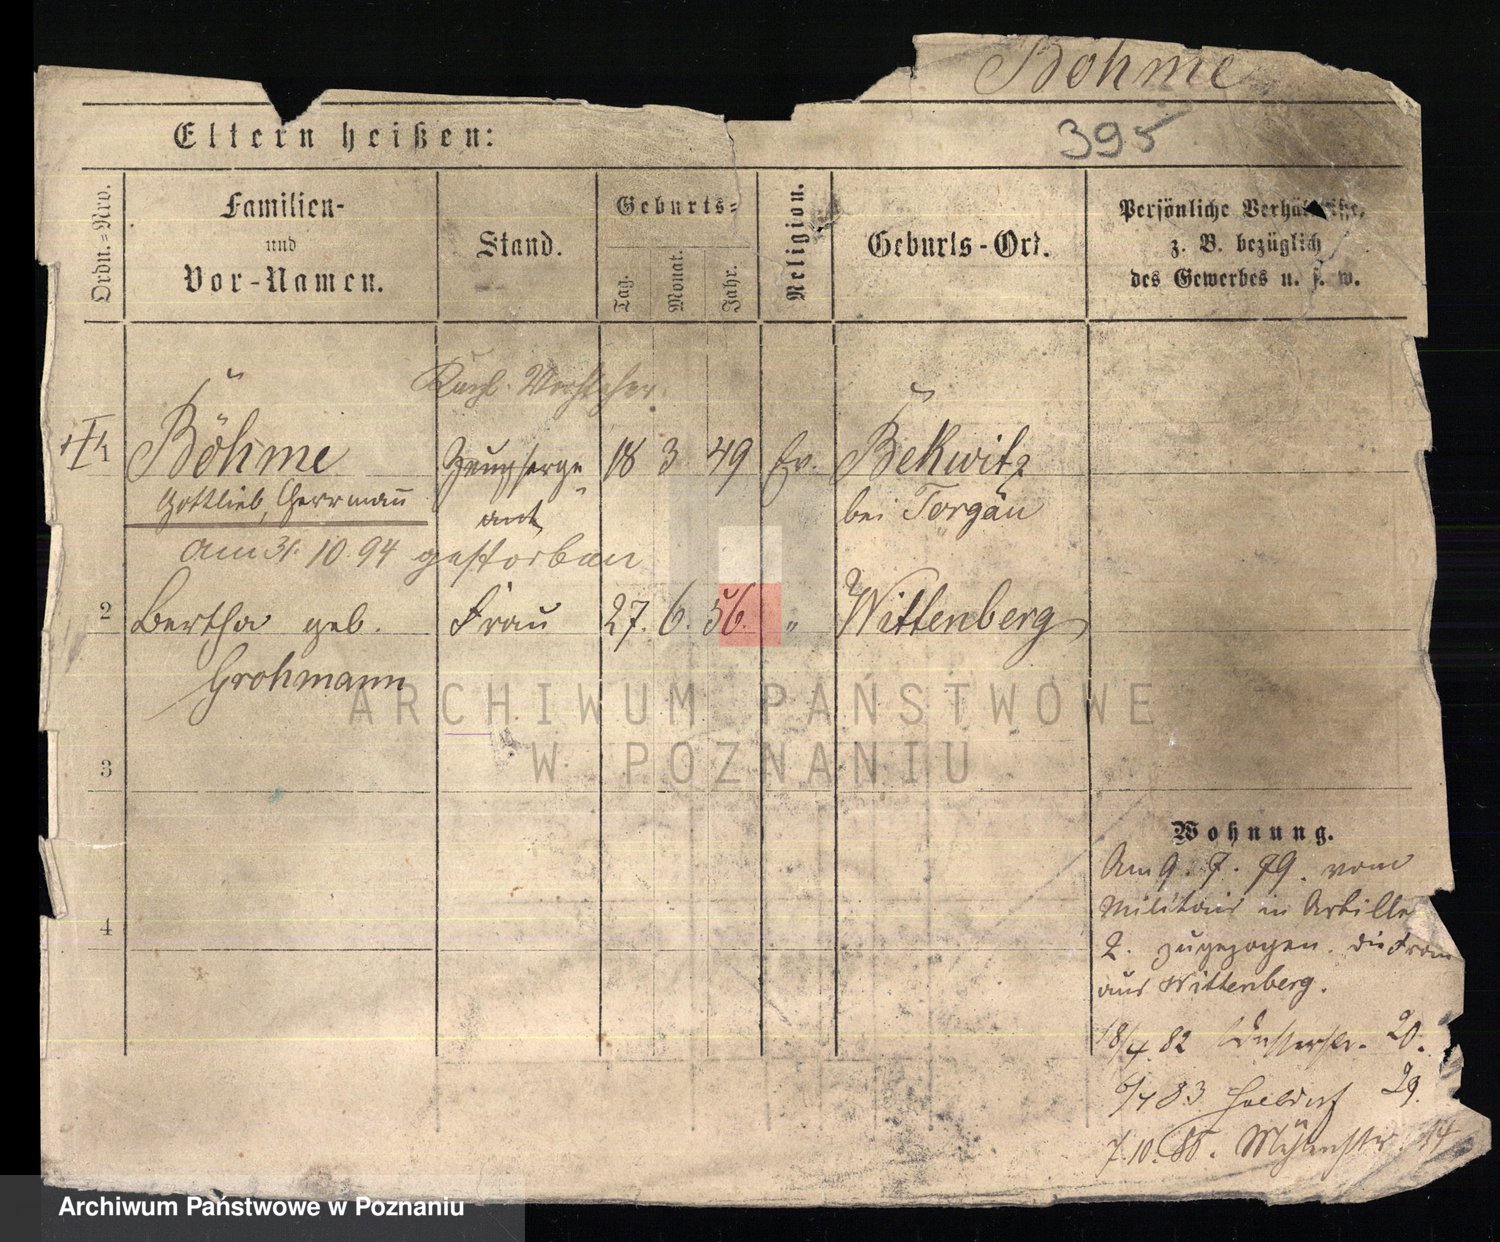 Böhme
395
Eltern heißen:
Ordn.-Nro.
Familien-
und
Vor-Namen.
Stand.
Geburts-
Tag.
Monat.
Jahr.
Religion.
Geburts-Ort.
Persönliche Verhältnisse,
z. B. bezüglich
des Gewerbes u. s. w.
Böhme
Gottlieb, Herrmann
Zeugserge
ant
18 3 49 Ev.
Bekwitz
bei Torgau
am 31. 10. 94 gestorben
2 Bertha geb. Frau 27. 6. 56. " Wittenberg
Grohmann
ARCHIWUM PAŃSTWOWE
W POZNANIU
3
4
Wohnung.
Am 9. 7. 79. vom
Militair in Artille
2. zugezogen. die Frau
aus Wittenberg.
18/4 82 20.
83 Halbdorf 29.
7.10. Mühlenstr. 14
Archiwum Państwowe w Poznaniu